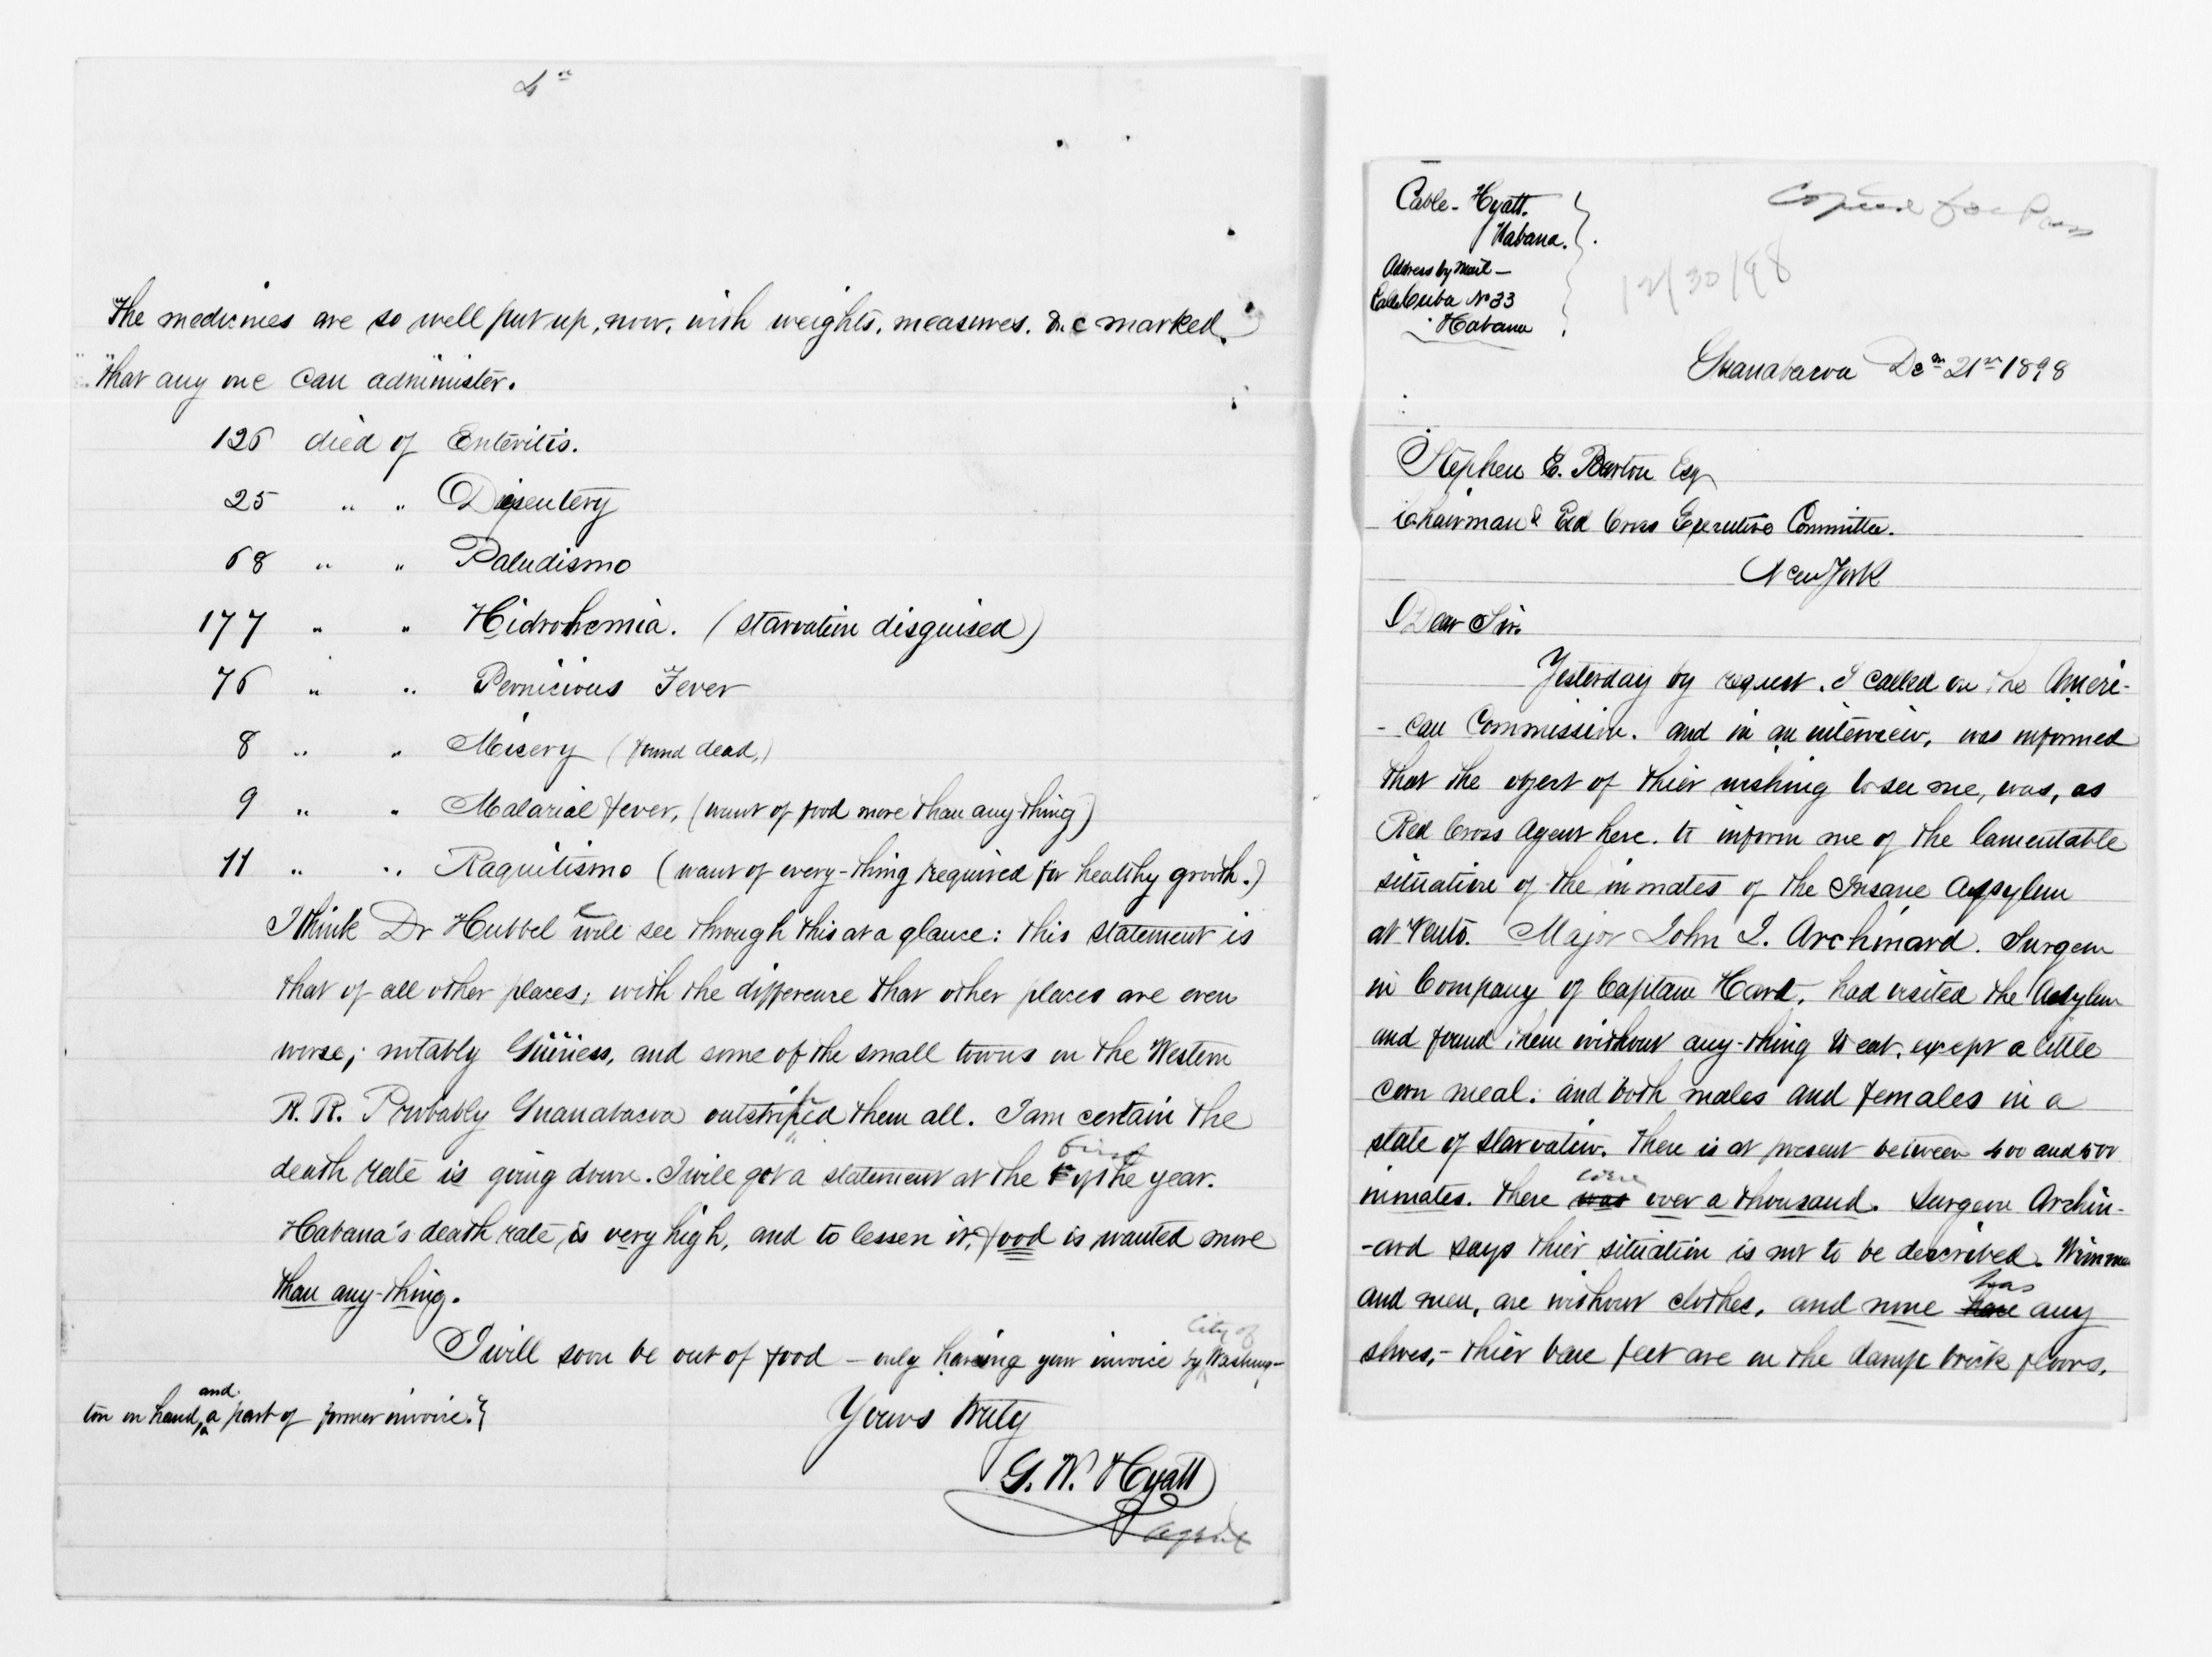 4th
The medicines are so well put up, now, with weights, measures. &c marked.
that any one can administer.
126 died of Enteritis.
25 " " Disentery
68 " " Paludismo
177 " " Hidrohemia. (starvation disguised)
76 " " Pernicious Fever
8 " " Misery (found dead,)
9 " " Malarial fever, (want of food more than any-thing)
11 " " Raquitismo (want of every-thing required for healthy growth.)
I think Dr Hubbel will see through this at a glance: this statement is
that of all other places; with the difference that other places are even
worse; notably Güiness, and some of the small towns on the Western
R. R. Probably Guanabacoa outstripped them all. I am certain the
death rate is going down. I will get a statement at the first of the year.
Habana's death rate, is very high, and to lessen it, food is wanted more
than any-thing.
I will soon be out of food – only having your invoice by City of Washing-
ton on hand, and a part of former invoice.
Yours truly
G. W. Hyatt
Agent
Cable - Hyatt.
Habana.
Address by Mail –
Calle Cuba No 33
Habana
Copied for Press
12/30/98
Guanabacoa Dec 21st 1898
Stephen E. Barton Esq
Chairman Red Cross Executive Committee.
New York
Dear Sir.
Yesterday by request. I called on the Ameri-
- can Commission. and in an interview, was informed
that the object of thier wishing to see me, was, as
Red Cross Agent here. to inform me of the lamentable
situation of the inmates of the Insane Asylum
at Vento. Major John J. Archinard. Surgeon
in Company of Captain Hart, had visited the Asylum
and found them without any-thing to eat, except a little
corn meal: and both males and females in a
state of starvation. There is at present between 400 and 500
inmates. There was were over a thousand. Surgeon Archin-
-ard says thier situation is not to be described. Wimmen
and men, are without clothes, and none have has any
shoes,- thier bare feet are on the damp brick floors.